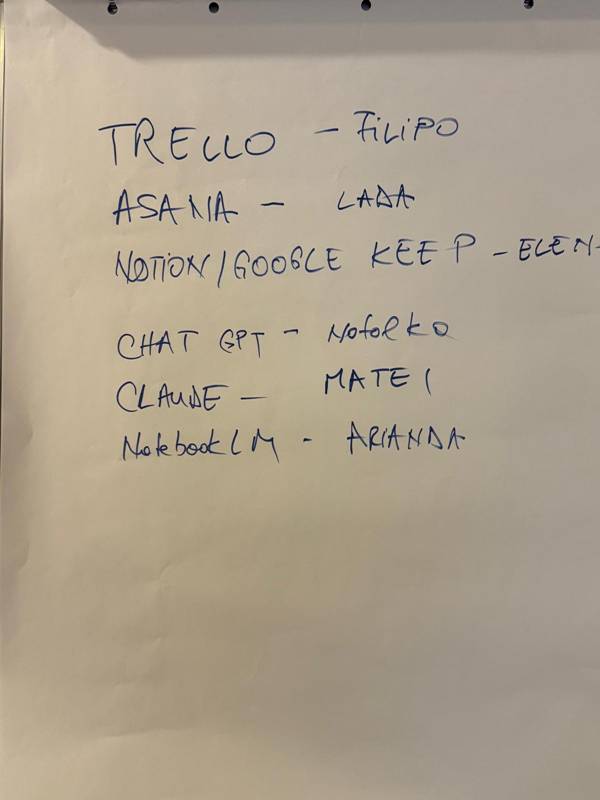 TRELLO - FiLiPO
ASANA - LADA
NOTION/GOOGLE KEEP - ELEN
CHAT GPT -
CLAUDE - MATEI
NotebookLM - ARIANDA